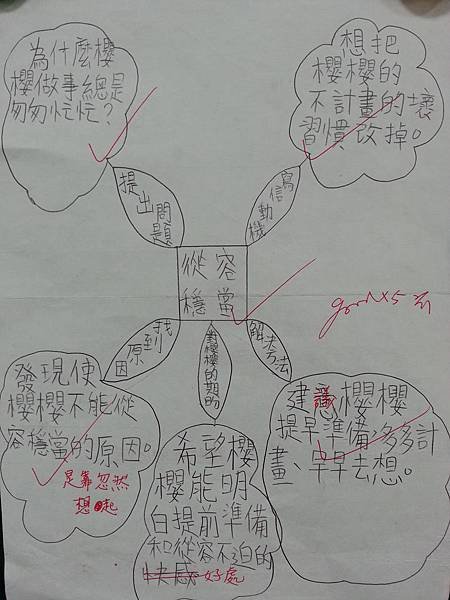 為什麼櫻
櫻做事總是
匆匆忙忙？
想把
櫻櫻的
不計畫的壞
習慣改掉。
提出問題
寫信動機
從容
穩當
good x5
找到原因
對櫻櫻的期的
解決方法
發現使
櫻櫻不能從
容穩當的原因。
是靠忽然
想起
希望櫻
櫻能明
白提前準備
和從容不迫的
快感好處
建議櫻櫻
提早準備多計
畫、早早去想。